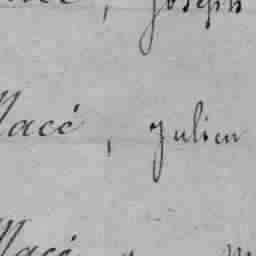 Joseph
Macé, Julien
Macé